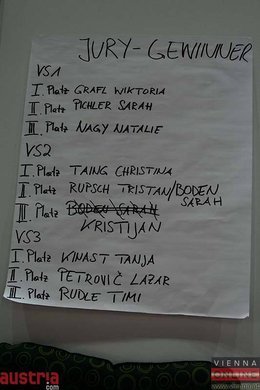 JURY-GEWINNER
VS1
I. Platz GRAFL WIKTORIA
II. Platz PICHLER SARAH
III. Platz NAGY NATALIE
VS2
I. Platz TAING CHRISTINA
II. Platz RUPSCH TRISTAN/BODEN SARAH
III. Platz BODEN SARAH
KRISTIJAN
VS3
I. Platz KINAST TANJA
II. Platz PETROVIČ LAZAR
III. Platz RUDLE TIMI
austria.com
VIENNA
ONLINE